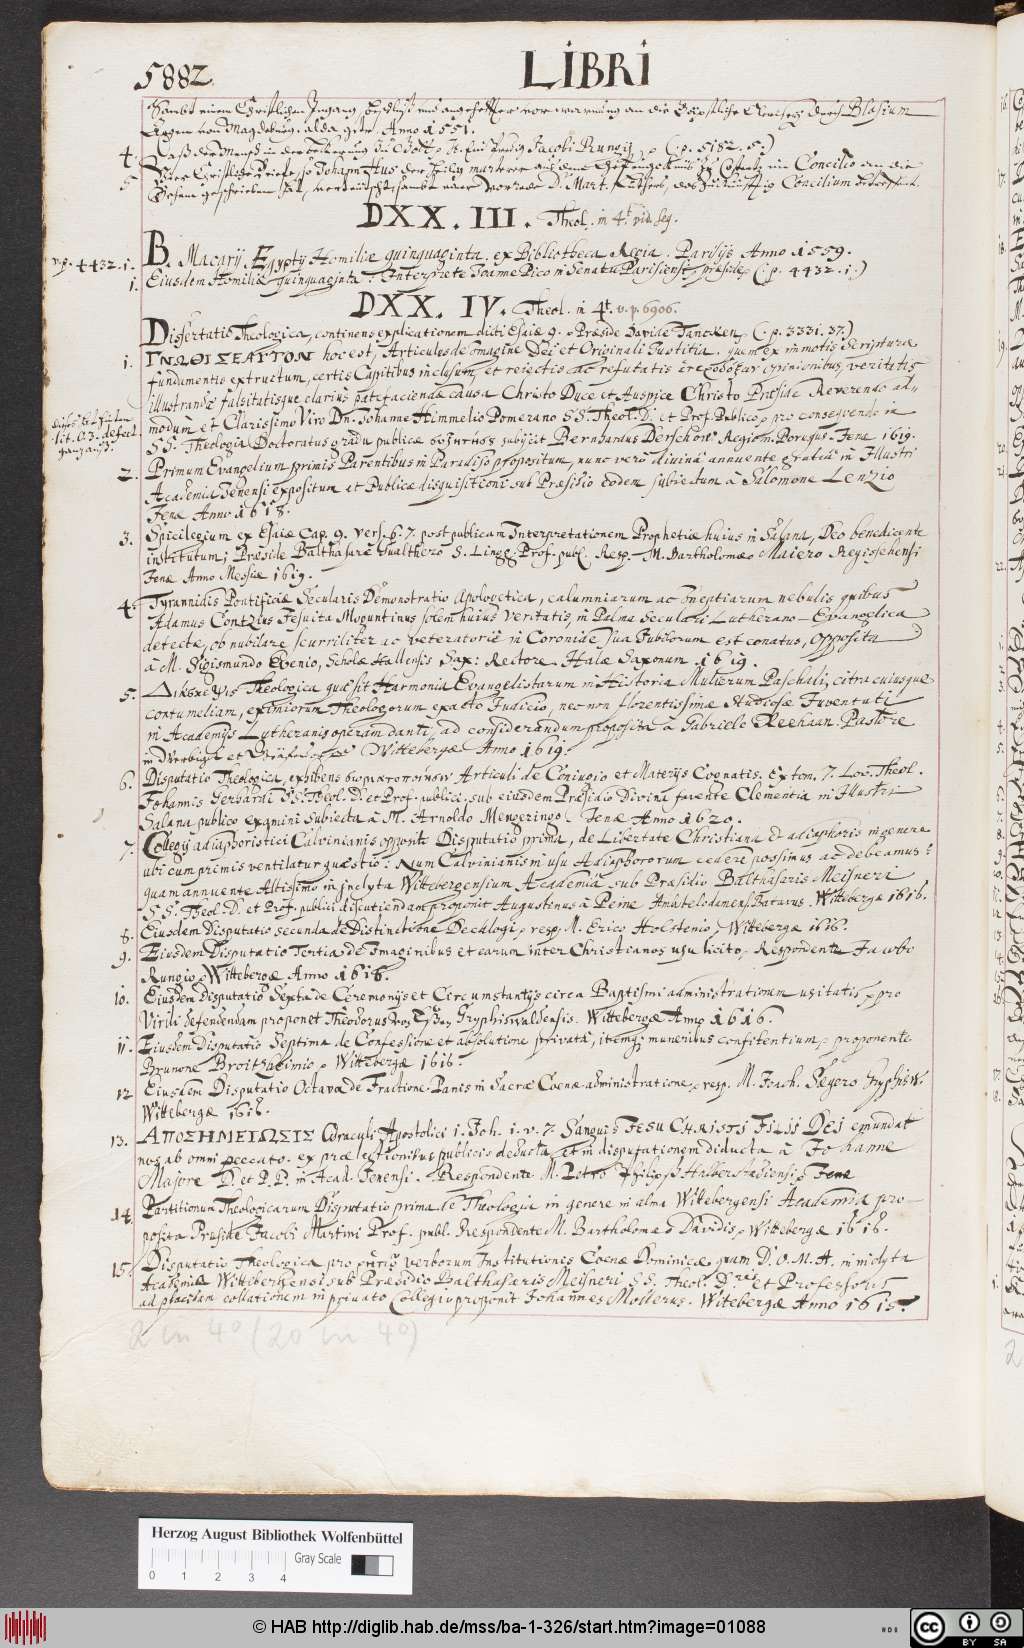 5882
LIBRI
Sambt einem Christlichen
von Magdeburg. Anno 1551.
4. Jacobi Rungij, (:p. 5182. 5:)
5. Vier Christliche Briefe, so Johann Hus der heilig marterer aus dem zu im Concilio an die
Behem geschrieben hat, sambt einer vorrede D. Mart. Luthers, Concilium
DXX. III. Theol. in 4t. vid. seq.
v.p. 4432.1.
B. Macarij Ægyptij Homiliæ quinquaginta. ex Bibliotheca Regia. Parisijs Anno 1559.
1. Eiusdem Homiliæ quinquaginta. Interprete Joanne Pico in Senatu Parisiensi præside (:p. 4432. 1:)
DXX. IV. Theol. in 4t. v. p. 6906.
Dissertatio Theologica, continens explicationem dicti Esaiæ 9. Præside Davide Tancken. (:p. 3331. 37:)
1. ΓΝΩΘΙΣΕΑΥΤΟΝ hoc est, Articulos de Imagine Dei et Originali Justitia, quem ex immotis Scripturæ
fundamentis extructum, certis Capitibus inclusum, et reiectis ac refutatis opinionibus, veritatis
illustrandæ falsitatisque clarius patefaciendæ causa Christo Duce et Auspice Christo Præside Reverendo ad-
modum et Clarissimo Viro Dn. Johanne Himmelio Pomerano S S. Theol. D. et Prof. Publico, pro consequendo in
S S. Theologia Doctoratus gradu publicæ subjicit Bernhardus Derschow Regiom. Porussus. Jenæ 1619.
lit. O. 3. defect
2. Primum Evangelium primis Parentibus in Paradiso propositum, nunc vero divinâ annuente gratiâ in Illustri
Academia Jenensi expositum et Publicæ disquisitioni sub Præsidio eodem subiectum â Salomone Lenzio
Jenæ Anno 1618.
3. Spicilegium ex Esaiæ Cap. 9. vers. 6. 7. post publicam Interpretationem Prophetiæ huius in Salana, Deo benedicente
institutum; Præside Balthasare Gualthero S. Lingg. Prof. publ. Resp. M. Bartholomæo Maiero
Jenæ Anno Messiæ 1619.
4. Tyrannidis Pontificiæ Secularis Demonstratio Apologetica, calumniarum ac ineptiarum nebulis, quibus
Adamus Contzius Jesuita Moguntinus solem huius veritatis, in Palma Seculari Lutherano-Evangelica
detectæ, obnubilare scurriliter ac veteratoriè in Coronide sua Jubilorum est conatus, opposita
â M. Sigismundo Evenio, Scholæ Hallensis Sax: Rectore Halæ Saxonum 1619.
5. Theologica quæ sit Harmonia Evangelistarum in Historia Mulierum Paschali, citra cuiusque
contumeliam, eximiorum Theologorum exacto Judicio, nec non florentissimæ Studiosæ Juventuti
in Academijs Lutheranis operam danti, ad considerandum proposita â Gabriele Reehaan Pastore
in et Wittebergæ Anno 1619.
6. Disputatio Theologica, exhibens Articuli de Coniugio et Materijs Cognatis. Ex tom. 7. Loc. Theol.
Johannis Gerhardi SS. Theol. D. et Prof. publici. sub eiusdem Præsidio Divina favente Clementia in Illustri
Salana publico examini subiecta â M. Arnoldo Mengeringo Jenæ Anno 1620.
7. Collegij adiaphoristici Calvinianis oppositi Disputatio prima, de Libertate Christiana et adiaphoris in genere
ubi cum primis ventilatur quæstio: Num Calvinianis in usu Adiaphororum cedere possimus ac debeamus?
quam annuente Altissimo in inclyta Wittebergensium Academia sub Præsidio Balthasaris Meisneri
S. S. Theol. D. et Prof. publici discutiendam proponit Augustinus â Peine Batavus. Wittebergæ 1616.
8. Eiusdem Disputatio secunda de Distinctione Decalogi, resp. M. Erico Holstenio, Wittebergæ 1616.
9. Eiusdem Disputatio Tertia de Imaginibus et earum inter Christianos usu licito, Respondente Jacobo
Rungio, Wittebergæ Anno 1616.
10. Eiusdem Disputatio Sexta de Ceremonijs et Circumstantijs circa Baptismi administrationem usitatis, pro
Virili defendendam proponet Theodorus Gryphiswaldensis. Wittebergæ Anno 1616.
11. Eiusdem Disputatio Septima de Confessione et absolutione privata, itemq; muneribus confitentium, proponente
Brunone Broitzheimio, Wittebergæ 1616.
12. Eiusdem Disputatio Octava de Fractione Panis in Sacræ Coenæ administratione, resp. M. Joach. Gryphisw.
Wittebergæ 1616.
13. ΑΠΟΣΗΜΕΙΩΣΙΣ Oraculi Apostolici 1. Joh. 1. v. 7. Sanguis JESU CHRISTI FILII DEI emundat
nos ab omni peccato. ex prælectionibus publicis deducta et in disputationem diducta â Johanne
Majore D. et P. P. in Acad. Jenensi. Respondente M. Petro Halberstadiensi, Jenæ
14. Partitionum Theologicarum Disputatio prima de Theologia in genere in alma Wittebergensi Academia pro-
posita Præside Jacobi Martini Prof. publ. Respondente M. Bartholomæo Davidis, Wittebergæ 1616.
15. Disputatio Theologica pro verborum Institutionis Coenæ Dominicæ quam D. O. M. A. in inclyta
Academia Wittebergensi sub Præsidio Balthasaris Meisneri SS. Theol. Dris et Professoris
ad placidam collationem in privato Collegio proponit Johannes Mollerus. Witebergæ Anno 1615.
2 in 4° (20 in 4°)
Herzog August Bibliothek Wolfenbüttel
Gray Scale
0 1 2 3 4
© HAB http://diglib.hab.de/mss/ba-1-326/start.htm?image=01088
cc BY SA